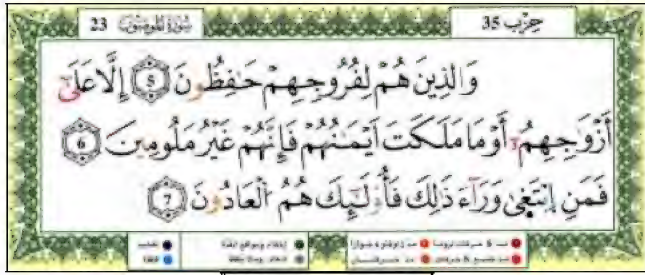 حزب 35 سورة المؤمنون 23
وَالذِينَ هُمْ لِفُرُوجِهِمْ حَٰفِظُونَ 5 إِلَّا عَلَىٰٓ
أَزْوَٰجِهِمُۥٓ أَوْ مَا مَلَكَتَ اَيْمَٰنُهُمْ فَإِنَّهُمْ غَيْرُ مَلُومِينَ 6
فَمَنِ اِبْتَغ۪ىٰ وَرَآءَ ذَٰلِكَ فَأُوْلَٰٓئِكَ هُمُ الْعَادُونَ 7